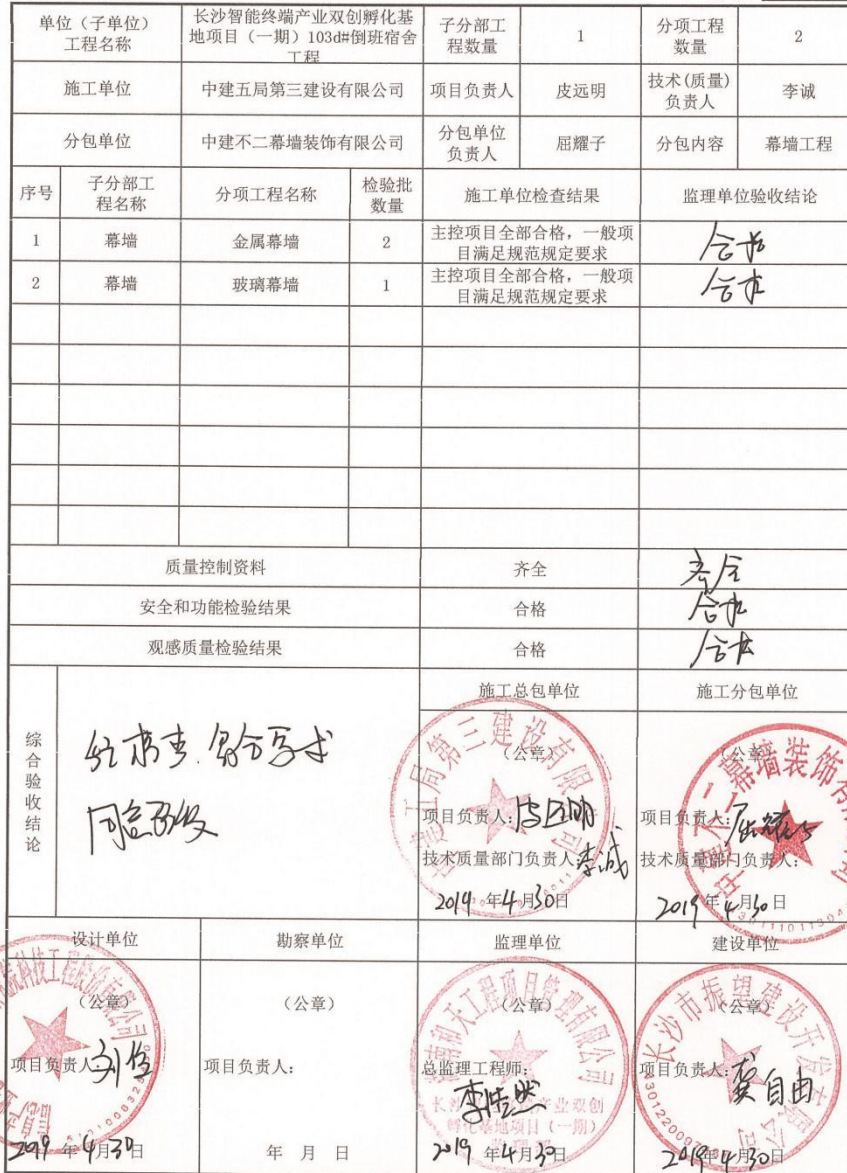 单位（子单位）
工程名称
长沙智能终端产业双创孵化基
地项目（一期）103d#倒班宿舍
工程
子分部工
程数量
1
分项工程
数量
2
施工单位
中建五局第三建设有限公司
项目负责人
皮远明
技术(质量)
负责人
李诚
分包单位
中建不二幕墙装饰有限公司
分包单位
负责人
屈耀子
分包内容
幕墙工程
序号
子分部工
程名称
分项工程名称
检验批
数量
施工单位检查结果
监理单位验收结论
1
幕墙
金属幕墙
2
主控项目全部合格，一般项
目满足规范规定要求
合格
2
幕墙
玻璃幕墙
1
主控项目全部合格，一般项
目满足规范规定要求
合格
质量控制资料
齐全
齐全
安全和功能检验结果
合格
合格
观感质量检验结果
合格
合格
综合验收结论
同意验收
施工总包单位
（公章）
项目负责人:皮远明
技术质量部门负责人:李诚
2019年4月30日
施工分包单位
（公章）
项目负责人:
技术质量部门负责人:
2019年4月30日
设计单位
（公章）
项目负责人:
2019年4月30日
勘察单位
（公章）
项目负责人:
年 月 日
监理单位
（公章）
总监理工程师:
李浩然
2019年4月30日
建设单位
（公章）
长沙市振望建设开发有限公司
项目负责人:龚自由
2019年4月30日